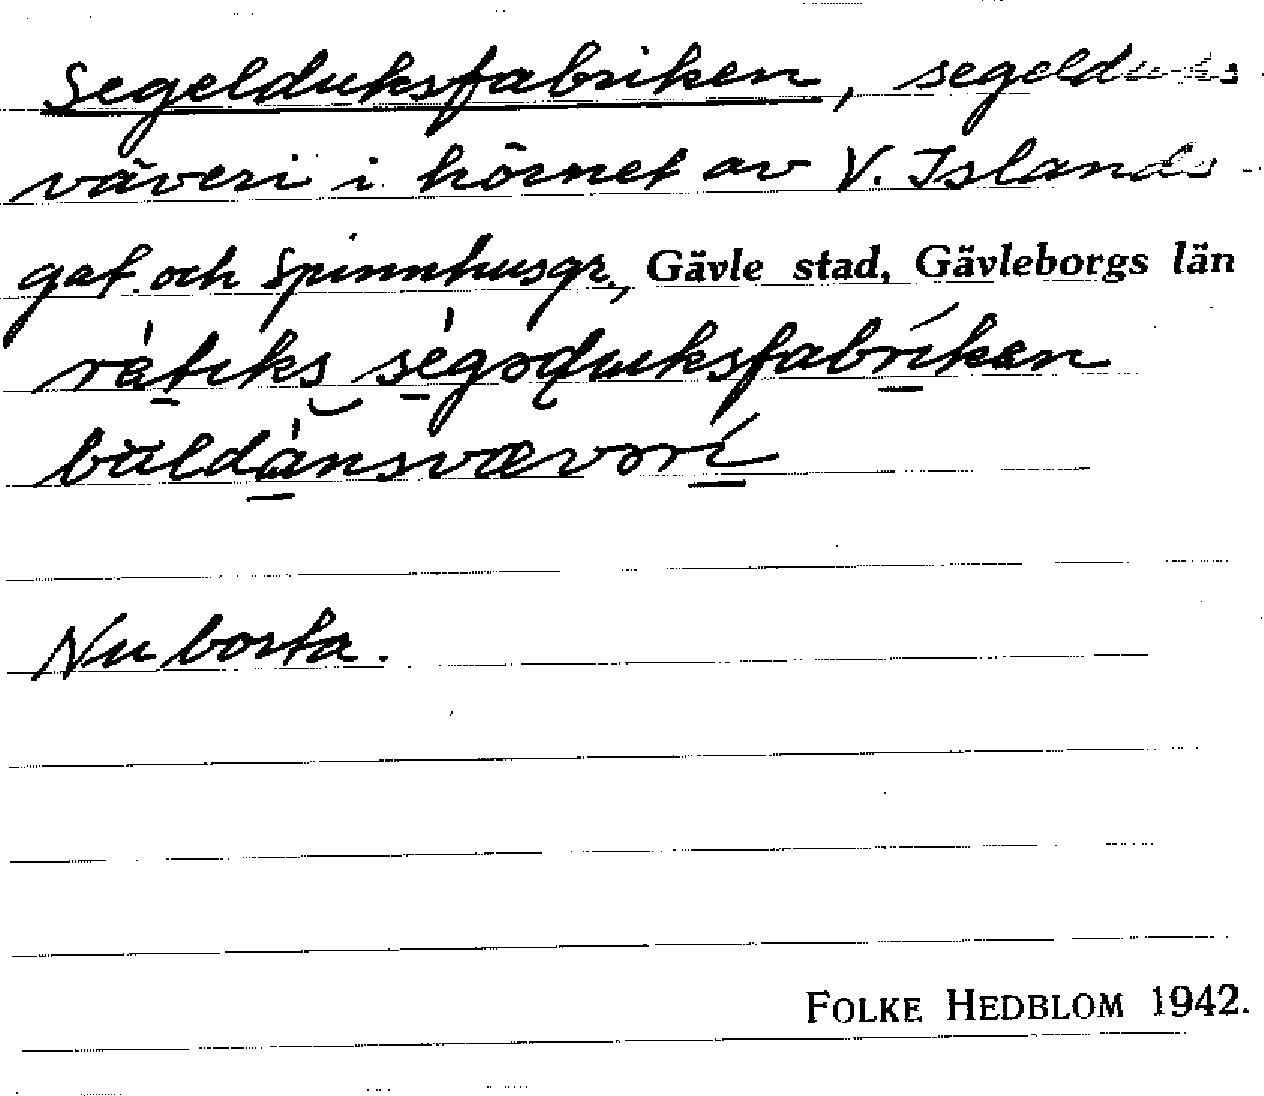 Segelduksfabriken, segelduks
väveri i hörnet av V. Islands-
gat. och Spinnhusgr., Gävle stad, Gävleborgs län
segəduksfabrikən
buldansvævəri
Nu borta.
FOLKE HEDBLOM 1942.